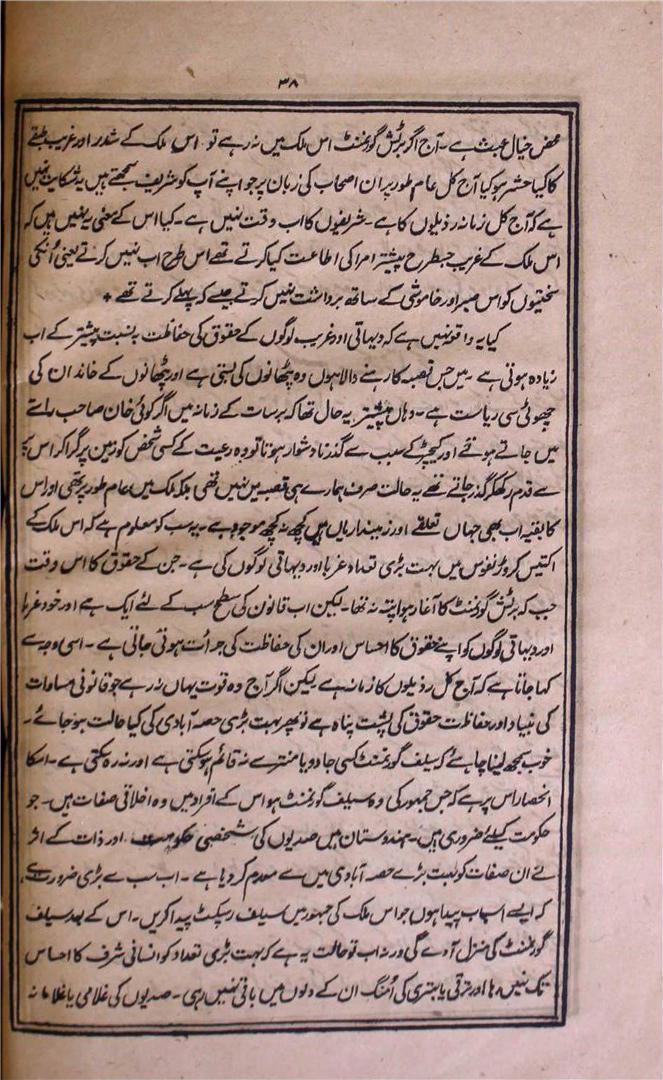 ۳۸
محض خیال عبث ہے۔ آج اگر برٹش گورنمنٹ اس ملک میں نہ رہے تو اس ملک کے شدر اور غریب طبقے
کا کیا حشر ہو کیا آج کل عام طور پر ان اصحاب کی زبان پر جو اپنے آپ کو شریف سمجھتے ہیں یہ شکایت نہیں
ہے کہ آج کل زمانہ رذیلوں کا ہے۔ شریفوں کا اب وقت نہیں ہے۔ کیا اس کے معنی یہ نہیں ہیں کہ
اس ملک کے غریب جسطرح پیشتر امرا کی اطاعت کیا کرتے تھے اس طرح اب نہیں کرتے یعنی اُنکی
سختیوں کو اس صبر اور خاموشی کے ساتھ برداشت نہیں کرتے جیسے کہ پہلے کرتے تھے +
کیا یہ واقعہ نہیں ہے کہ دیہاتی اور غریب لوگوں کے حقوق کی حفاظت بہ نسبت پیشتر کے اب
زیادہ ہوتی ہے۔ میں جس قصبہ کا رہنے والا ہوں وہ پٹھانوں کی بستی ہے اور پٹھانوں کے خاندان کی
چھوٹی سی ریاست ہے۔ وہاں پیشتر یہ حال تھا کہ برسات کے زمانہ میں اگر کوئی خان صاحب راستے
میں جاتے ہوتے اور کیچڑ کے سبب سے گذرنا دشوار ہوتا تو وہ رعیت کے کسی شخص کو زمین پر گرا کر اس پر
سے قدم رکھکر گذر جاتے تھے یہ حالت صرف ہمارے ہی قصبہ میں نہیں تھی بلکہ ملک میں عام طور پر تھی اور اس
کا بقیہ اب بھی جہاں تعلقے اور زمینداریاں ہیں کچھ نہ کچھ موجود ہے۔ یہ سب کو معلوم ہے کہ اس ملک کے
اکتیس کروڑ نفوس میں بہت بڑی تعداد غربا اور دیہاتی لوگوں کی ہے۔ جن کے حقوق کا اس وقت
جب کہ برٹش گورنمنٹ کا آغاز ہوا پتہ نہ تھا۔ لیکن اب قانون کی سطح سب کے لئے ایک ہے اور خود غربا
اور دیہاتی لوگوں کو اپنے حقوق کا احساس اور ان کی حفاظت کی جرأت ہوتی جاتی ہے۔ اسی وجہ سے
کہا جاتا ہے کہ آج کل رذیلوں کا زمانہ ہے لیکن اگر آج وہ قوت یہاں نہ رہے جو قانونی مساوات
کی بنیاد اور حفاظت حقوق کی پشت پناہ ہے تو پھر بہت بڑی حصہ آبادی کی کیا حالت ہو جائے۔
خوب سمجھ لینا چاہئے کہ سیلف گورنمنٹ کسی جادو یا منتر سے نہ قائم ہو سکتی ہے اور نہ رہ سکتی ہے۔ اسکا
انحصار اس پر ہے کہ جس جمہور کی وہ سیلف گورنمنٹ ہو اس کے افراد میں وہ اخلاقی صفات ہیں۔ جو
حکومت کیلئے ضروری ہیں۔ ہندوستان میں صدیوں کی شخصی حکومت اور ذات کے اثر
نے ان صفات کو بہت بڑے حصہ آبادی میں سے معدوم کر دیا ہے۔ اب سب سے بڑی ضرورت ہے
کہ ایسے اسباب پیدا ہوں جو اس ملک کی جمہور میں سیلف رسپکٹ پیدا کریں۔ اس کے بعد سیلف
گورنمنٹ کی منزل آوے گی ورنہ اب تو حالت یہ ہے کہ بہت بڑی تعداد کو انسانی شرف کا احساس
تک نہیں رہا اور ترقی یا بہتری کی اُمنگ ان کے دلوں میں باقی نہیں رہی۔ صدیوں کی غلامی یا غلامانہ